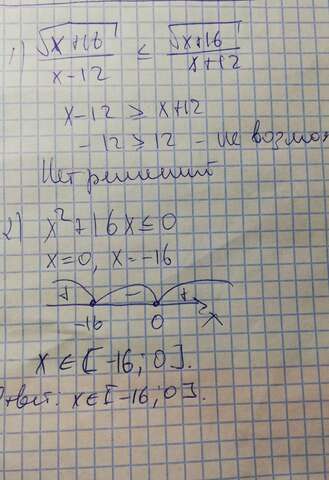 1) √(x+16)/(x-12) ≤ √(x+16)/(x+12)
x-12 ≥ x+12
-12 ≥ 12 - не возмож
Нет решений
2) x²+16x≤0
x=0, x=-16
+ - +
-16 0 x
x∈[-16; 0].
Ответ: x∈[-16; 0].